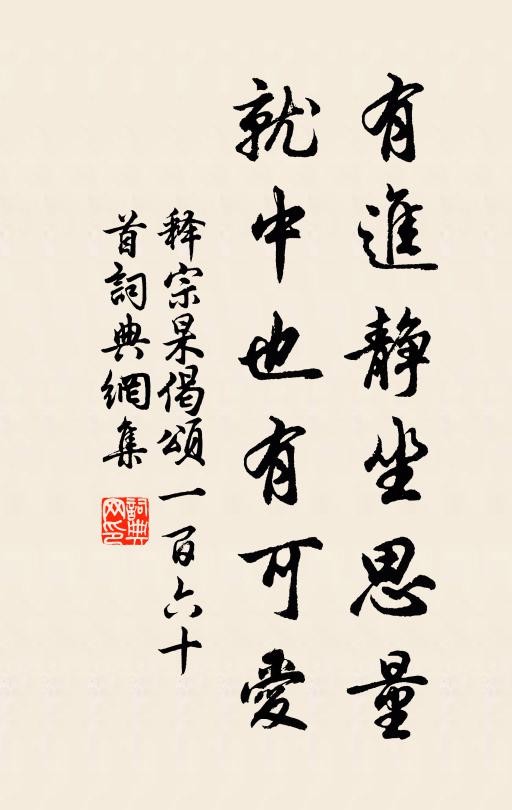 有進靜坐思量
就中也有可愛
釋宗杲偈頌一百六十
首詞典網集
詞典
网印